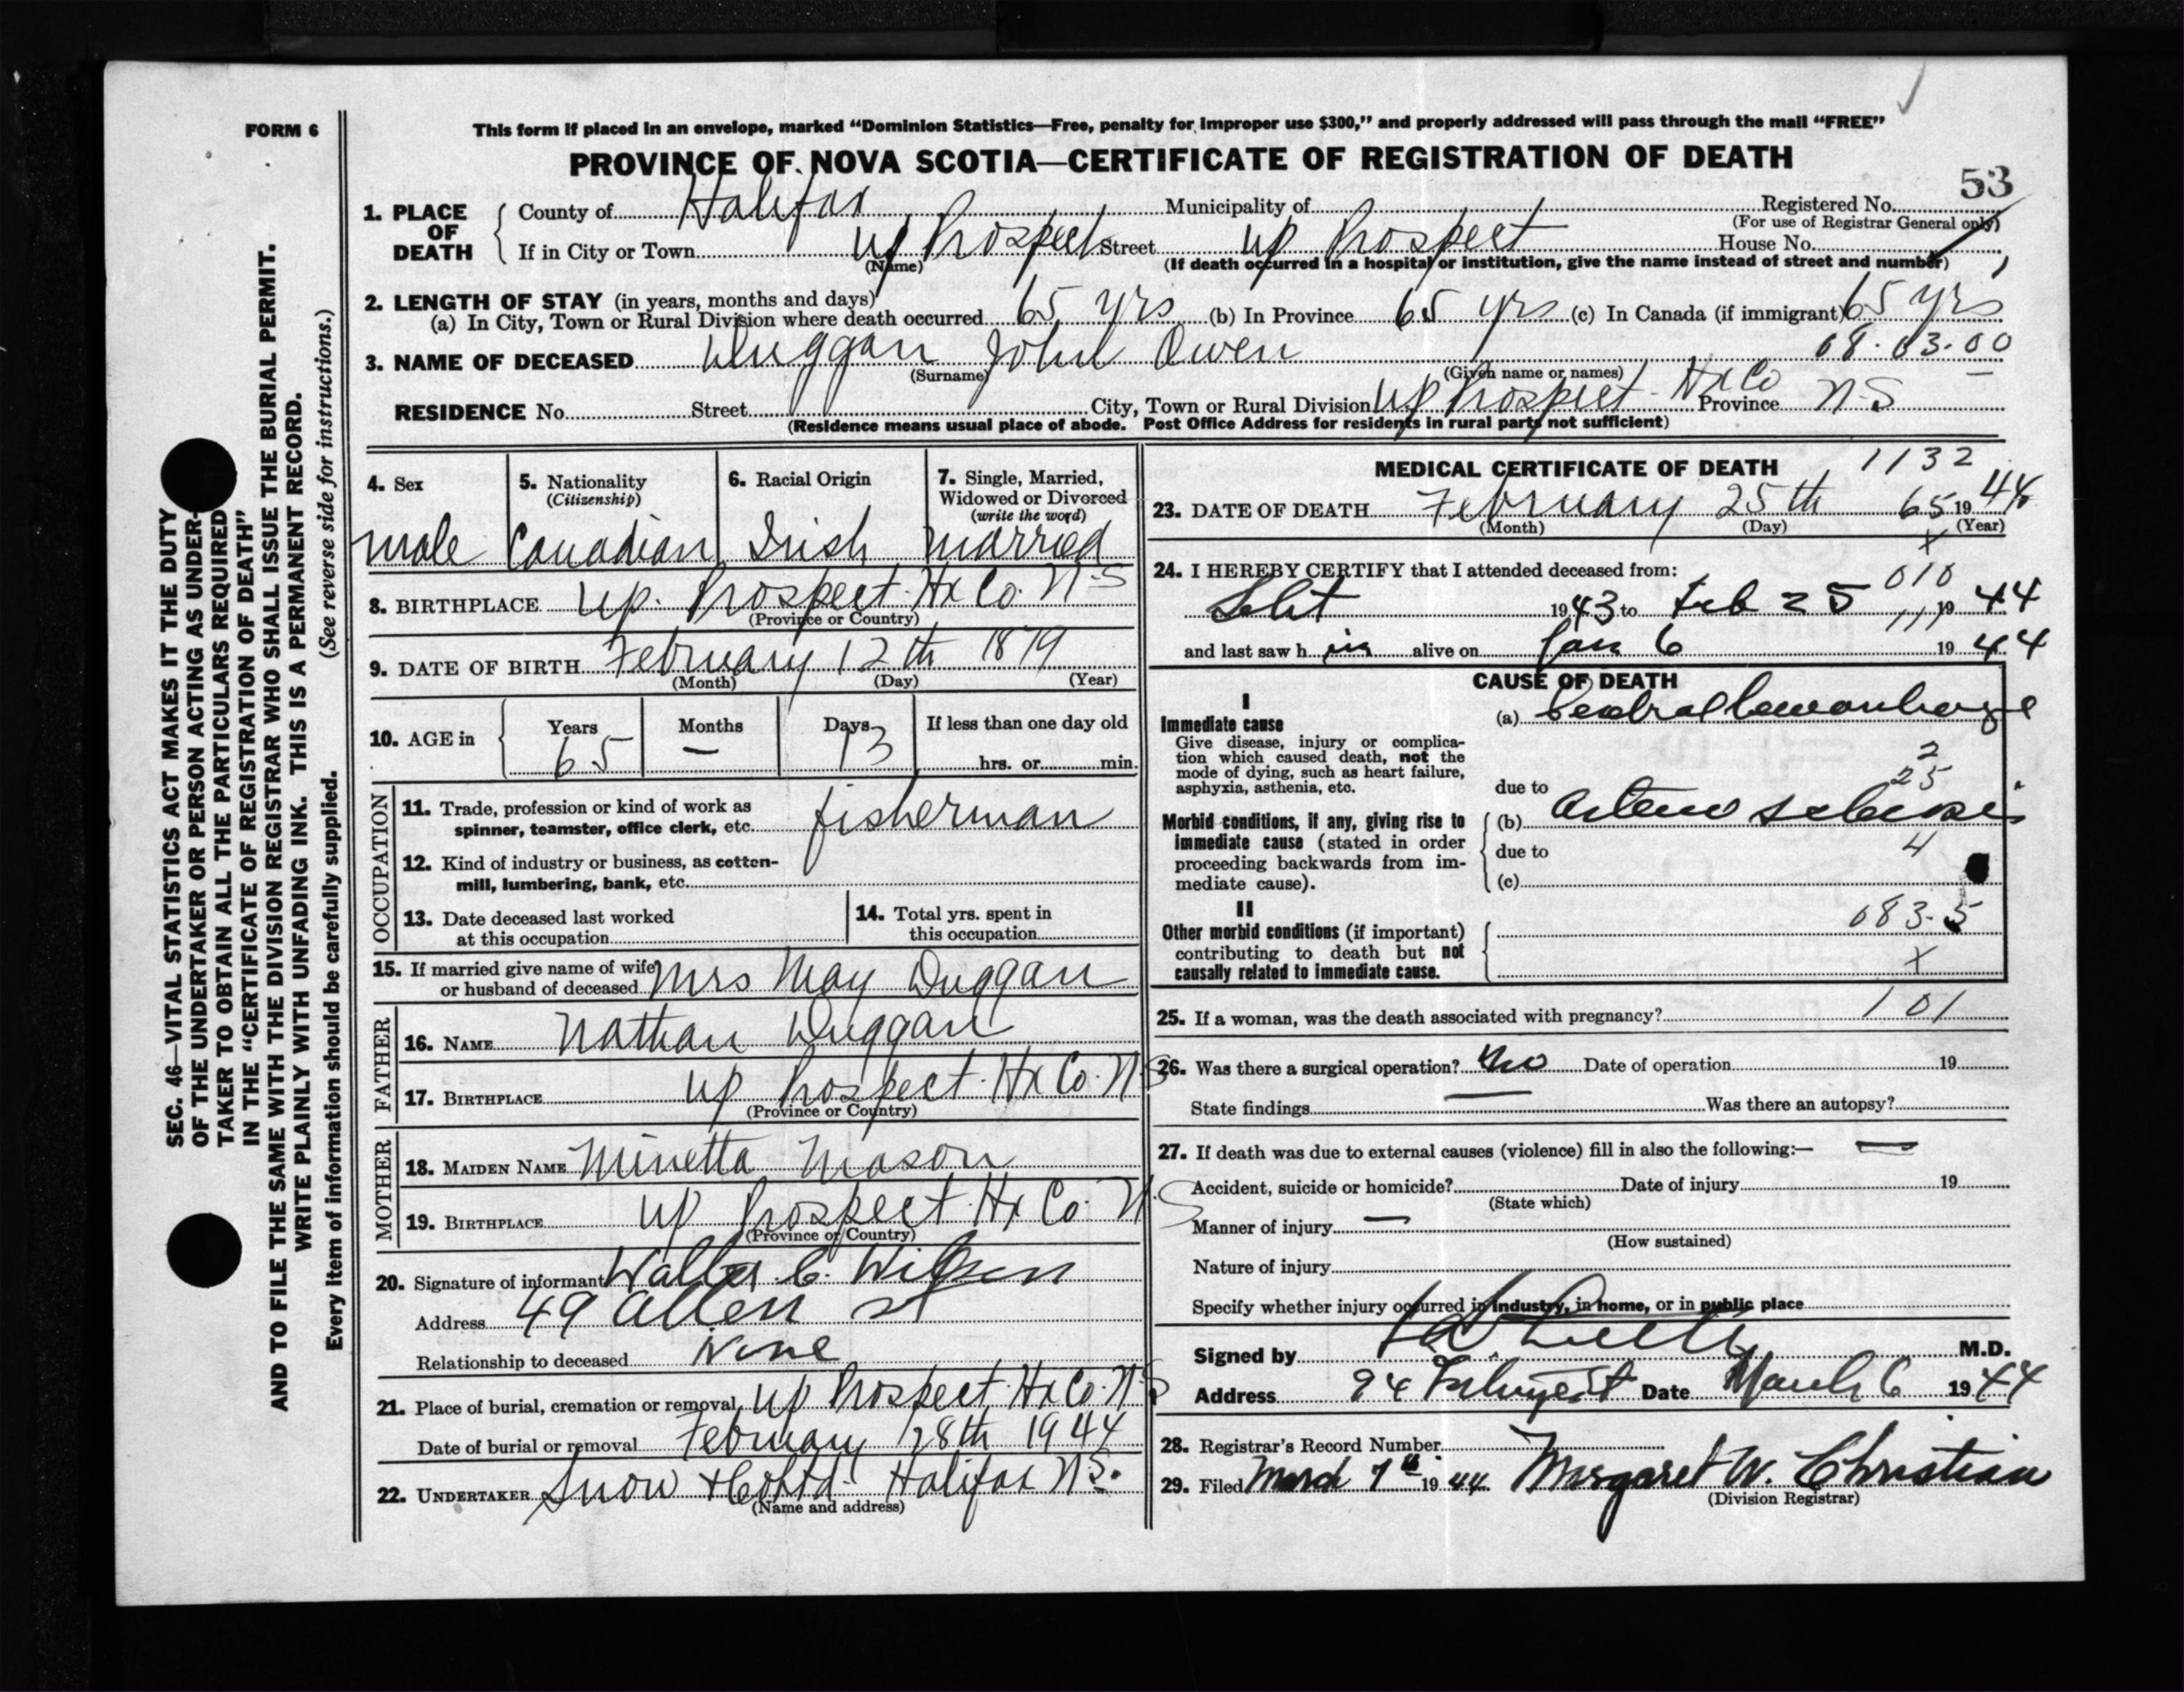 FORM 6
This form if placed in an envelope, marked "Dominion Statistics—Free, penalty for improper use $300," and properly addressed will pass through the mail "FREE"
PROVINCE OF NOVA SCOTIA—CERTIFICATE OF REGISTRATION OF DEATH
53
1. PLACE OF DEATH
County of Halifax Municipality of Registered No.
(For use of Registrar General only)
If in City or Town Up Prospect Street Up Prospect House No.
(Name) (If death occurred in a hospital or institution, give the name instead of street and number)
2. LENGTH OF STAY (in years, months and days)
(a) In City, Town or Rural Division where death occurred 65 yrs (b) In Province 65 yrs (c) In Canada (if immigrant) 65 yrs
3. NAME OF DECEASED Duggan John Owen 68.03.00
(Surname) (Given name or names)
RESIDENCE No. Street City, Town or Rural Division Up Prospect Hx Co Province N-S
(Residence means usual place of abode. Post Office Address for residents in rural parts not sufficient)
4. Sex 5. Nationality 6. Racial Origin 7. Single, Married,
(Citizenship) Widowed or Divorced
(write the word)
male Canadian Irish married
8. BIRTHPLACE Up. Prospect. Hx Co. N-S
(Province or Country)
9. DATE OF BIRTH February 12th 1879
(Month) (Day) (Year)
10. AGE in Years Months Days If less than one day old
65 — 13 hrs. or min.
OCCUPATION
11. Trade, profession or kind of work as
spinner, teamster, office clerk, etc. fisherman
12. Kind of industry or business, as cotton-
mill, lumbering, bank, etc.
13. Date deceased last worked
at this occupation
14. Total yrs. spent in
this occupation
15. If married give name of wife
or husband of deceased Mrs May Duggan
FATHER
16. NAME Nathan Duggan
17. BIRTHPLACE Up Prospect. Hx Co. N S
(Province or Country)
MOTHER
18. MAIDEN NAME Minetta Mason
19. BIRTHPLACE Up Prospect. Hx Co. N.S
(Province or Country)
20. Signature of informant Walter C. Wilson
Address 49 Allen St
Relationship to deceased None
21. Place of burial, cremation or removal Up Prospect. Hx Co. N-S
Date of burial or removal February 28th 1944
22. UNDERTAKER Snow & Co Ltd. Halifax N S.
(Name and address)
MEDICAL CERTIFICATE OF DEATH 1132
23. DATE OF DEATH February 25th 65 1944
(Month) (Day) (Year)
X
24. I HEREBY CERTIFY that I attended deceased from: 010
Sept 1943 to Feb 25 1944
and last saw h im alive on Jan 6 1944
CAUSE OF DEATH
I
Immediate cause
Give disease, injury or complica-
tion which caused death, not the
mode of dying, such as heart failure,
asphyxia, asthenia, etc.
(a)
2
25
due to
Morbid conditions, if any, giving rise to
immediate cause (stated in order
proceeding backwards from im-
mediate cause).
(b)
due to 4
(c)
II
Other morbid conditions (if important)
contributing to death but not
causally related to immediate cause.
083.5
X
25. If a woman, was the death associated with pregnancy? 101
26. Was there a surgical operation? no Date of operation 19
State findings — Was there an autopsy?
27. If death was due to external causes (violence) fill in also the following:— —
Accident, suicide or homicide? Date of injury 19
(State which)
Manner of injury —
(How sustained)
Nature of injury
Specify whether injury occurred in industry, in home, or in public place
Signed by M.D.
Address 94 Date March 6 1944
28. Registrar's Record Number
29. Filed March 7th 1944 Margaret W. Christian
(Division Registrar)
SEC. 46—VITAL STATISTICS ACT MAKES IT THE DUTY
OF THE UNDERTAKER OR PERSON ACTING AS UNDER-
TAKER TO OBTAIN ALL THE PARTICULARS REQUIRED
IN THE "CERTIFICATE OF REGISTRATION OF DEATH"
AND TO FILE THE SAME WITH THE DIVISION REGISTRAR WHO SHALL ISSUE THE BURIAL PERMIT.
WRITE PLAINLY WITH UNFADING INK. THIS IS A PERMANENT RECORD.
Every item of information should be carefully supplied. (See reverse side for instructions.)